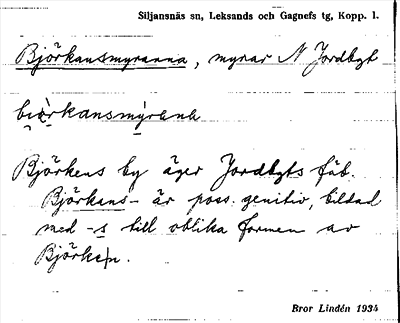 Siljansnäs sn, Leksands och Gagnefs tg, Kopp. l.
Björkansmyranna, myrar N Jordbgt
Björkens by äger Jordbgts fäb.
Björkans- är poss. genitiv, bildad
med -s till oblika formen av
Björken.
Bror Lindén 1934